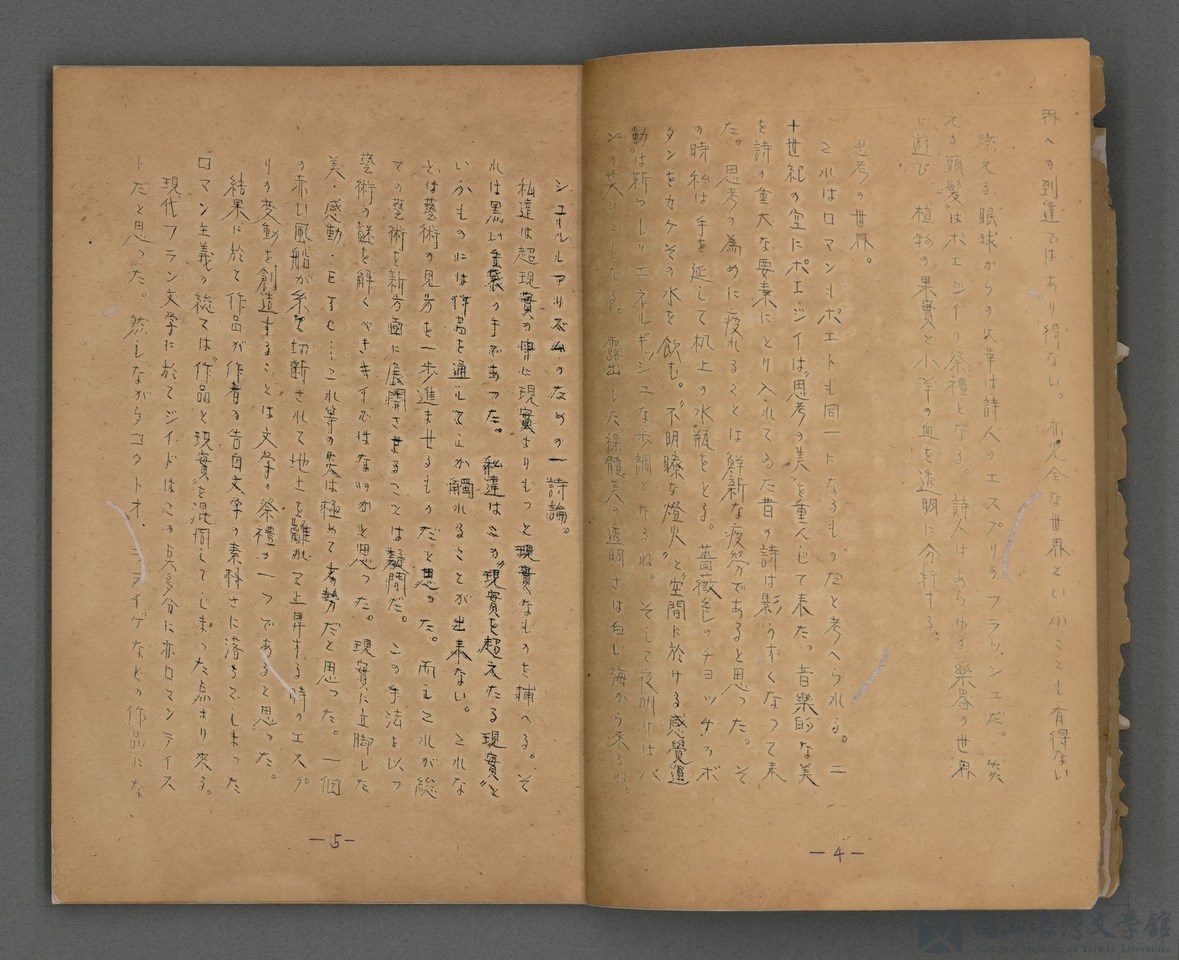 界への到達ではあり得ない。亦完全な世界といふことも有得ない
燃える眼球からの火華は詩人のエスプリのフラッシュだ。炎
える頭髮はポエジイの祭禮となる。詩人はあらゆる樂器の世界
に遊び、植物の果實と小羊の血を透明に分析する。
思考の世界。
これはロマンもポエトも同一になるものだと考へられる。二
十世紀の空にポエジイは“思考の美”を重大して来た。音樂的な美
を詩の重大な要素にとり入れてゐた昔の詩は影うすくなつて来
た。思考の為めに疲れることは鮮新な疲労であると思つた。そ
の時私は手を延して机上の水瓶をとる。薔薇色のチヨツキのボ
タンをカケその水を飲む。“不明瞭な燈火”と“空間に於ける感覺運
動”は新らしいエネルギツシユな歩調となるね。そして夜明けはパ
ンの笑ひとなる。露出した裸體美の透明さは白い海から来るね。
—4—
シュルレアリズムのための一詩論。
私達は超現實の中に現實よりもつと現實なものを捕へる。そ
れは黒い薔薇の手であつた。私達はこの“現實を超えたる現實”と
いふものには作品を通してしか觸れることが出来ない。これな
どは藝術の見方を一歩進ませるものだと思つた。而もこれが総
ての藝術を新方面に展開させることは疑問だ。この手法を以つ
て藝術の謎を解くべきキイではないかと思つた。現實に立脚した
美・感動・モラル……これ等の炎は極めて劣勢だと思つた。一個
の赤い風船が糸を切断されて地上を離れて上昇する時のエスプ
リの変動を創造することは文学の祭禮の一つであると思つた。
結果に於て作品が作者の告白文学の素料さに落ちてしまつた
ロマン主義の総ては“作品と現實”を混同してしまつた点より来る。
現代フランス文学に於てジイドはこの点多分に亦ロマンテイス
トだと思つた。然しながらコクトオ、ラディゲなどの作品にな
—5—